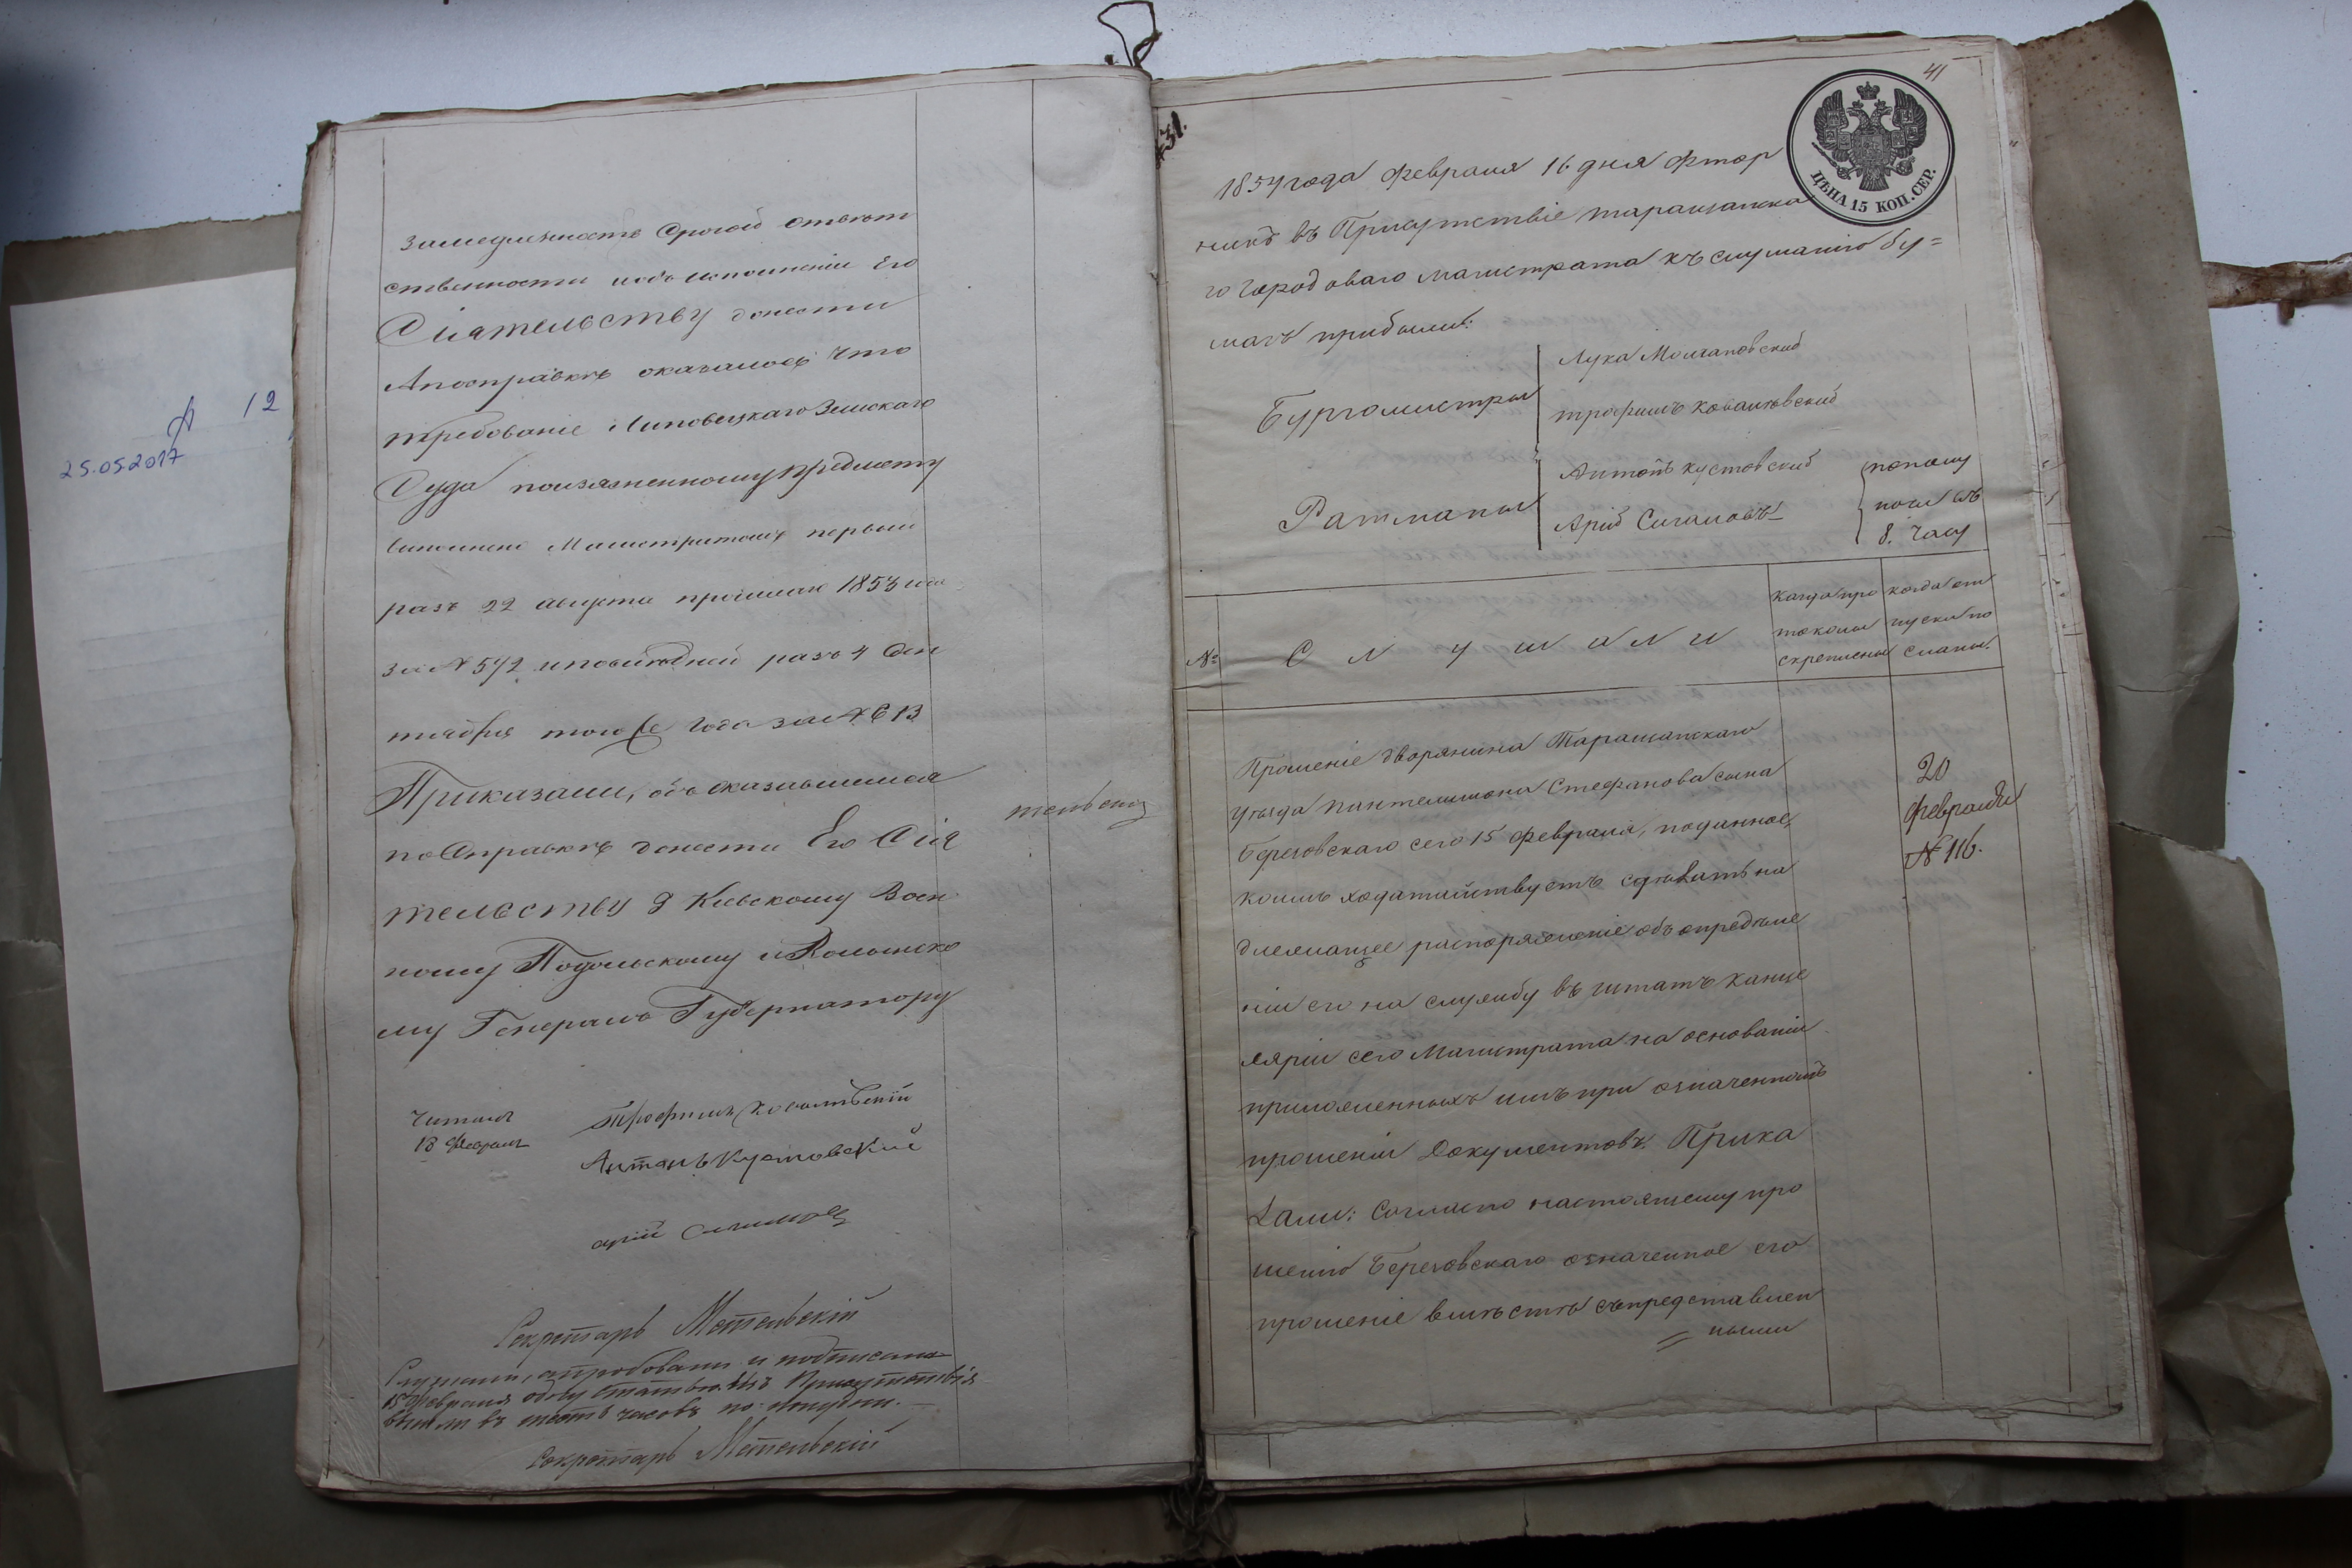 А 12
25.05.2017
замедленность строгой ответст
ственности и объ исполненіи Его
Сіятельству донести
А по справкѣ оказалось что
требованіе Липовецкаго Земскаго
Суда по изъясненному предмету
исполнено Магистратомъ первый
разъ 22 августа прошлаго 1853 года
за № 542 и послѣдней разъ 4 Сен
тября того же года за № 613
Приказали, объ оказавшимся
по справкѣ донести Его Сія
тельству Г Кіевскому Воен
ному Подольскому и Волынско
му Генералъ Губернатору
Читалъ
18 Февраля
Трофимъ Ковалевскій
Антонъ Кустовскій
арій
Секретарь Метельскій
Слушали, апробовали и подписали
15 Февраля одну статью. Изъ Присутствія
вышли въ шесть часовъ по полудни.
Секретарь Метельскій
тельскій
31.
41
ЦѢНА 15 КОП. СЕР.
1854 года Февраля 16 дня Фтор
никъ въ Присутствіе Таращанска
го Городоваго Магистрата къ слушанію бу=
магъ прибыли:
Бургомистры
Лука Молчановский
Трофимъ Ковалевский
Ратманы
Антонъ Кустовский
Арий
пополу
ночи въ
8. Часу
№
Слушали
Когда про
токолы
скреплены
когда от
пуски по
сланы.
Прошеніе дворянина Таращанскаго
уѣзда Пантелимона Стефанова сына
Березовскаго сего 15 февраля, поданное,
коимъ ходатайствуетъ сдѣлать на
длежащее распоряженіе объ опредѣле
ніи его на службу въ штатъ Канце
ляріи сего Магистрата на основаніи
приложенныхъ имъ при означенномъ
прошеніи документовъ. Прика
зали: Согласно настоящему про
шенію Березовскаго означенное его
прошеніе вмѣстѣ съ представлен
= ными
20
Февраля
№ 116.